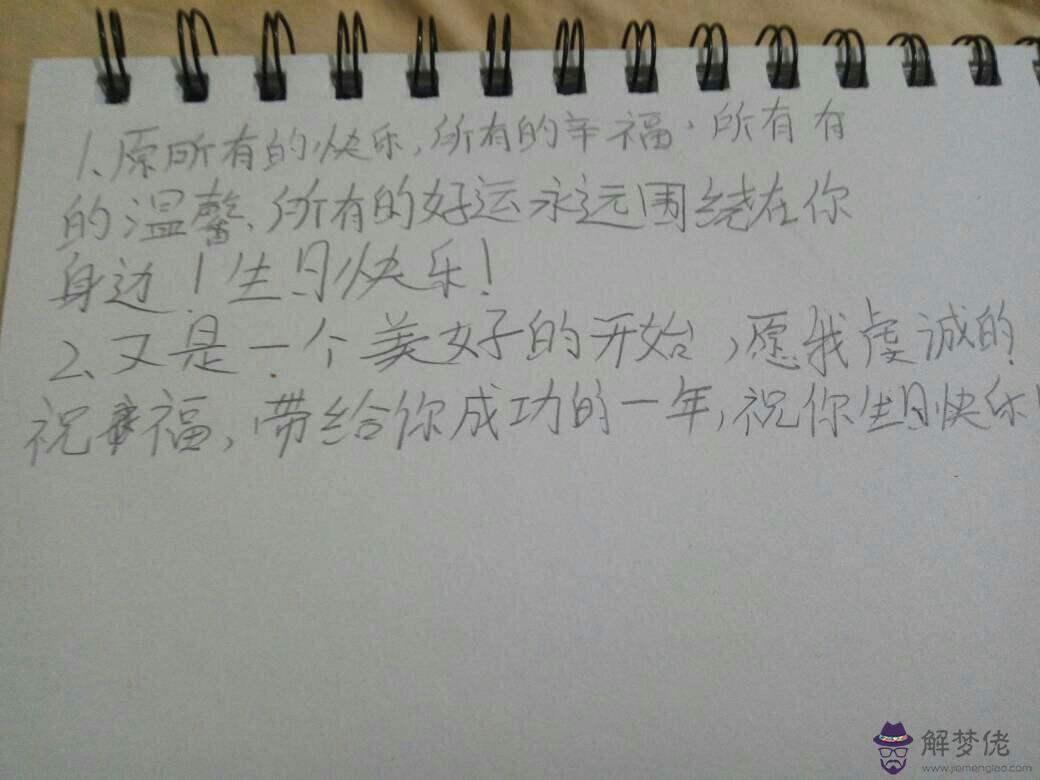 1、原所有的快乐,所有的辛福、所有有
的温馨、所有的好运永远围绕在你
身边!生日快乐!
2、又是一个美好的开始,愿我虔诚的
祝福,带给你成功的一年,祝你生日快乐!
解梦佬
www.jiemenglao.com